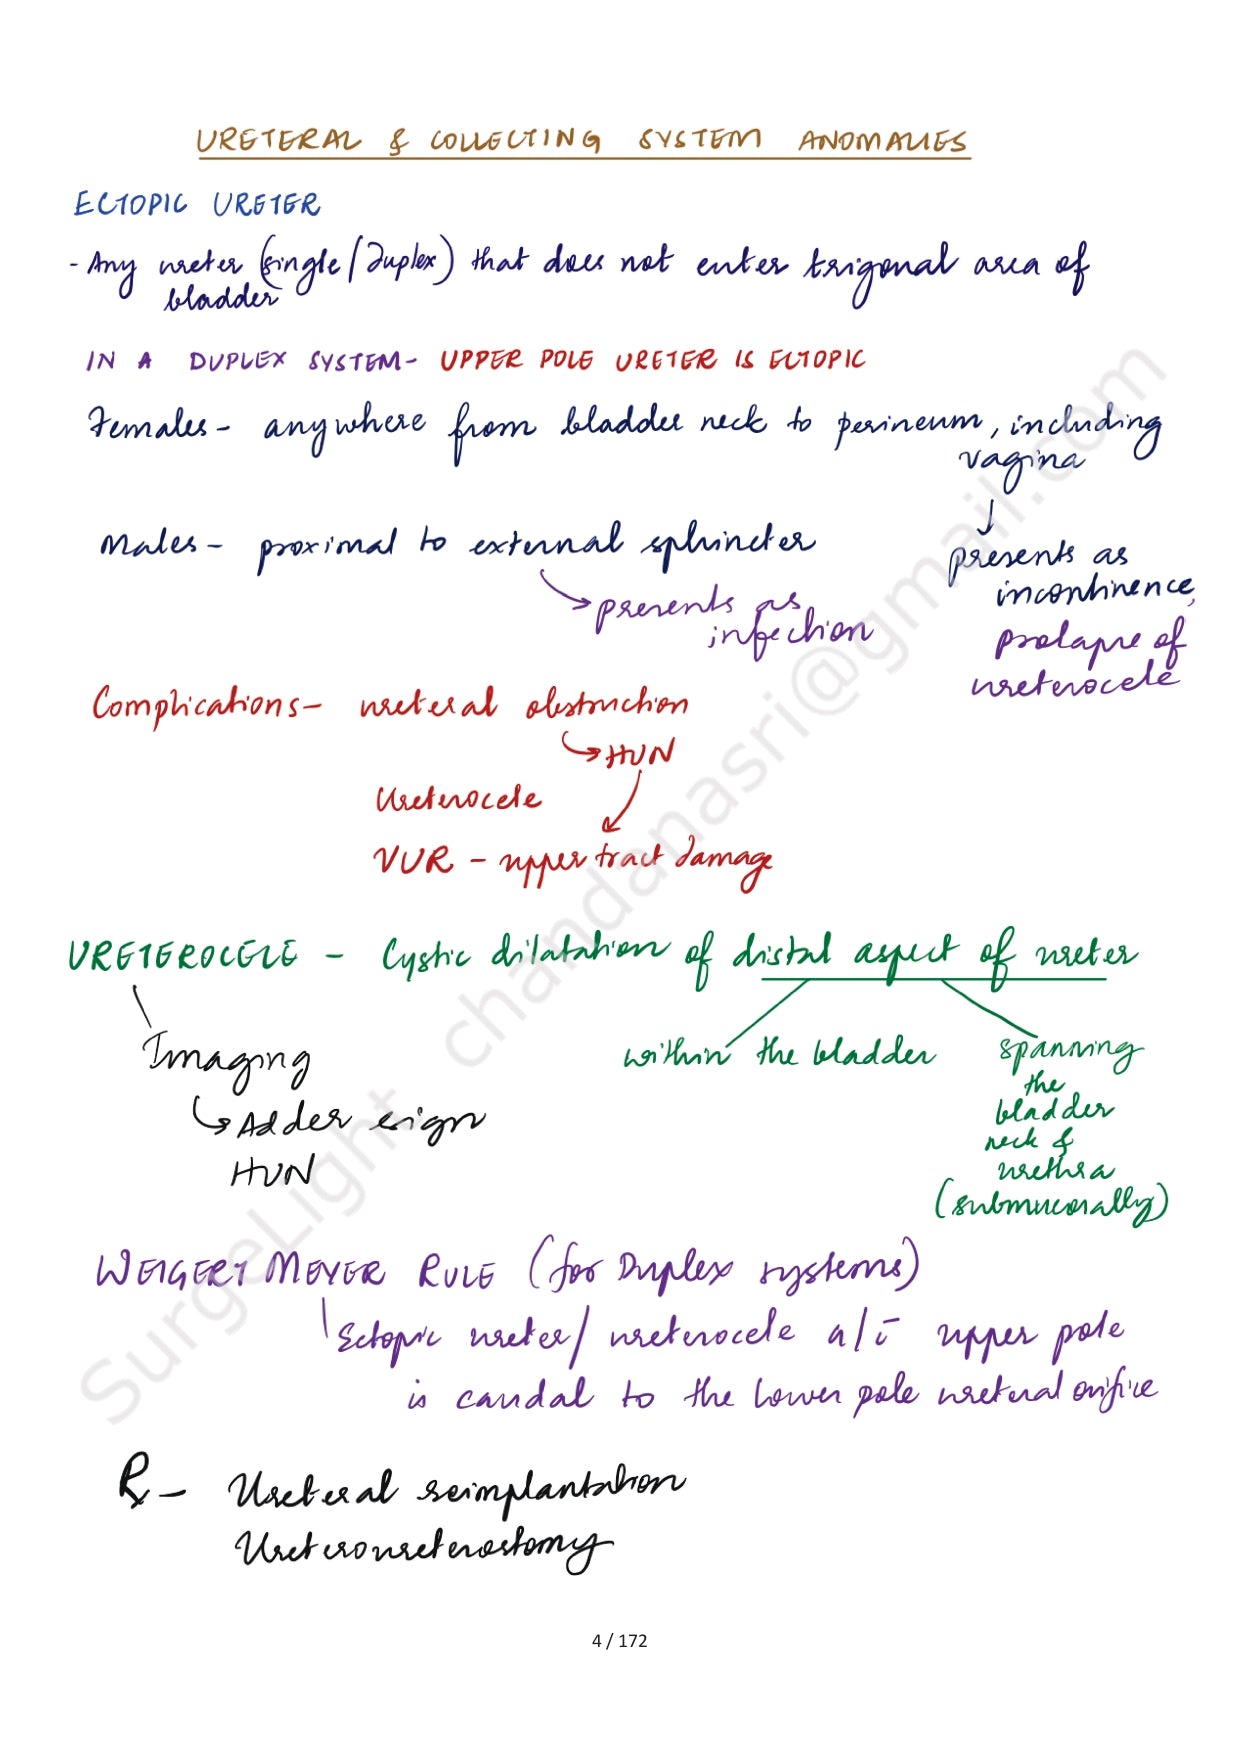 URETERAL & COLLECTING SYSTEM ANOMALIES
ECTOPIC URETER
- Any ureter (single/duplex) that does not enter trigonal area of
bladder
IN A DUPLEX SYSTEM- UPPER POLE URETER IS ECTOPIC
Females - anywhere from bladder neck to perineum, including
vagina
↓
presents as
incontinence,
prolapse of
ureterocele
Males - proximal to external sphincter
presents as
infection
Complications - ureteral obstruction
HUN
Ureterocele
VUR - upper tract damage
URETEROCELE - Cystic dilatation of distal aspect of ureter
within the bladder
spanning
the
bladder
neck &
urethra
(submucosally)
Imaging
Adder sign
HUN
WEIGERT MEYER RULE (for Duplex systems)
Ectopic ureter/ureterocele a/c̄ upper pole
is caudal to the lower pole ureteral orifice
Rx - Ureteral reimplantation
Ureteroureterostomy
SurgeLight chandanasri@gmail.com
4 / 172